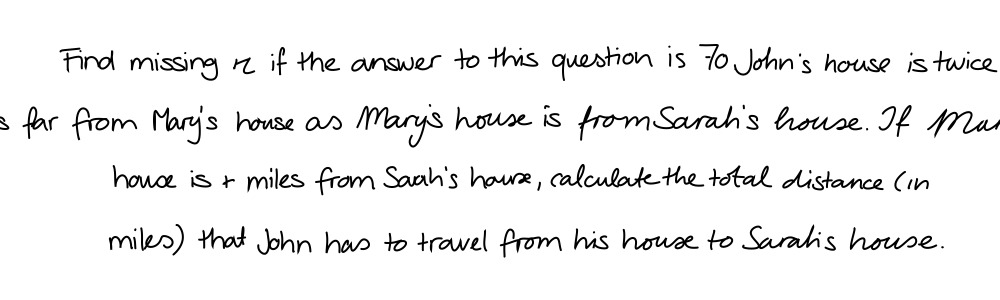 Find missing r if the answer to this question is 70 John's house is twice
s far from Mary's house as Mary's house is from Sarah's house. If Mar
house is r miles from Sarah's house, calculate the total distance (in
miles) that John has to travel from his house to Sarah's house.